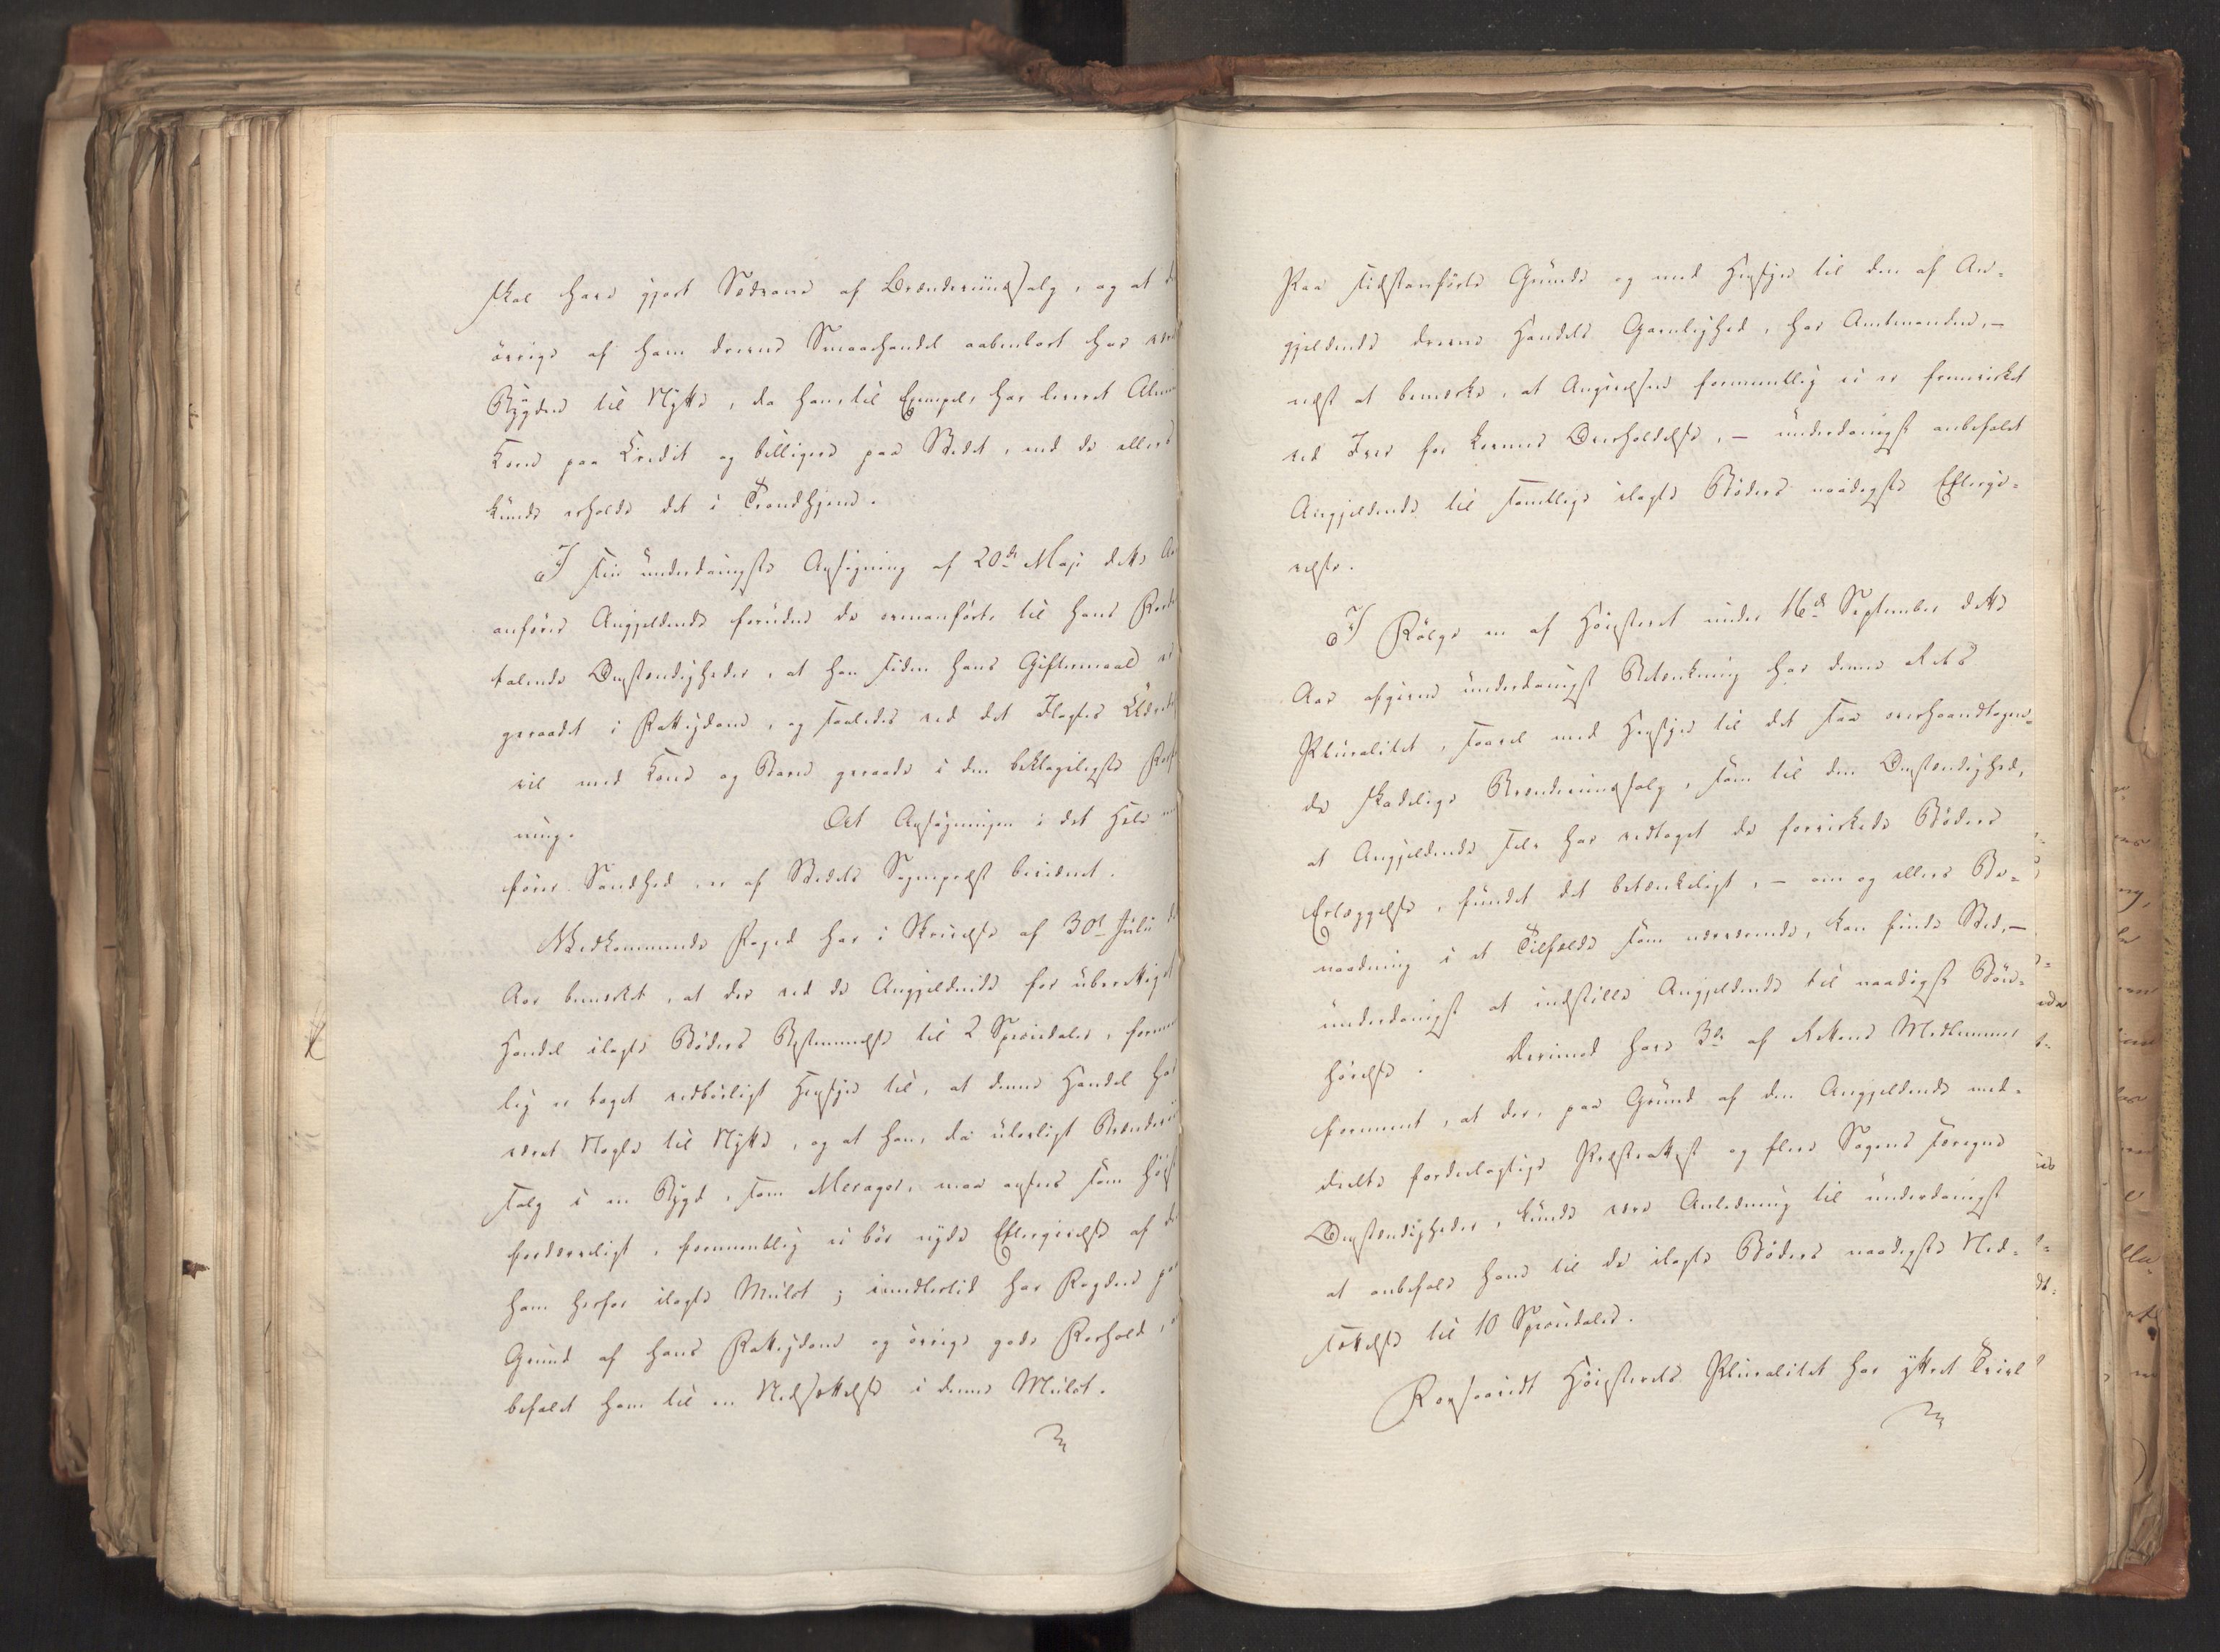 skal have gjort Sædvane af Brændeviinssalg, og at d
øvrige af ham drevne Smaahandel aabenbart har være
Bygden til Nytte, da han, til Exempel, har leveret Almu
Korn paa Kredit og billigere paa Stedet, end de ellers
kunde erholde det i Trondhjem.
I sin underdanigste Ansøgning af 20de Maji dette Aa
anfører Angjeldende foruden de ovenanførte til hans Forde
talende Omstændigheder, at han siden hans Giftermaal er
geraadet i Fattigdom, og saaledes ved det Ilagtes Udrede
vil med Kone og Børn geraade i den beklageligste Forfa
ning. At Ansøgningen i det Hele med
fører Sandhed, er af Stedets Sognepræst bevidnet.
Vedkommende Foged har i Skrivelse af 30te Julii d.
Aar bemærket, at der ved de Angjeldende for uberettiget
Handel ilagte Bøders Bestemmelse til 2 Speciedaler, formo
lig er taget tilbørligt Hensyn til, at denne Handel har
været Nogle til Nytte, og at han, da ulovligt Brændevi
salg i en Bygd, som Meragor, maa ansees som høist
fordærveligt, formeentlig ei bør nyde Eftergivelse af de
ham herfor ilagte Mulct; imidlertid har Fogden paa
Grund af hans Fattigdom og øvrige gode Forhold, an
befalet ham til en Nedsættelse i denne Mulct.
Paa sidstanførte Grunde og med Hensyn til den af An-
gjeldende drevne Handels Gavnlighed, har Amtmanden, –
næst at bemærke, at Angivelsen formeentlig ei er fremvirket
ved Iver for Lovenes Overholdelse, – underdanigst anbefalet
Angjeldende til samtlige ilagte Bøders naadigste Eftergi-
velse.
I Følge en af Høiesteret under 16de September dette
Aar afgiven underdanigst Betænkning har denne Rets
Pluralitet, saavel med Hensyn til det saa overhaandtagen-
de skadelige Brændeviinssalg, som til den Omstændighed,
at Angjeldende selv har vedtaget de forvirkede Bøders
Erlæggelse, fundet det betænkeligt, – om og ellers Be-
naadning i et Tilfælde som nærværende, kan finde Sted, –
underdanigst at indstille Angjeldende til naadigst Bøn-
hørelse. Derimod have 3de af Rettens Medlemmer
formeent, at der, paa Grund af den Angjeldende med-
deelte fordeelagtige Præsteattest og flere Sagens særegne
Omstændigheder, kunde være Anledning til underdanigst
at anbefale ham til de ilagte Bøders naadigste Ned-
sættelse til 10 Speciedaler.
Forsaavidt Høiesterets Pluralitet har yttret Tvivl